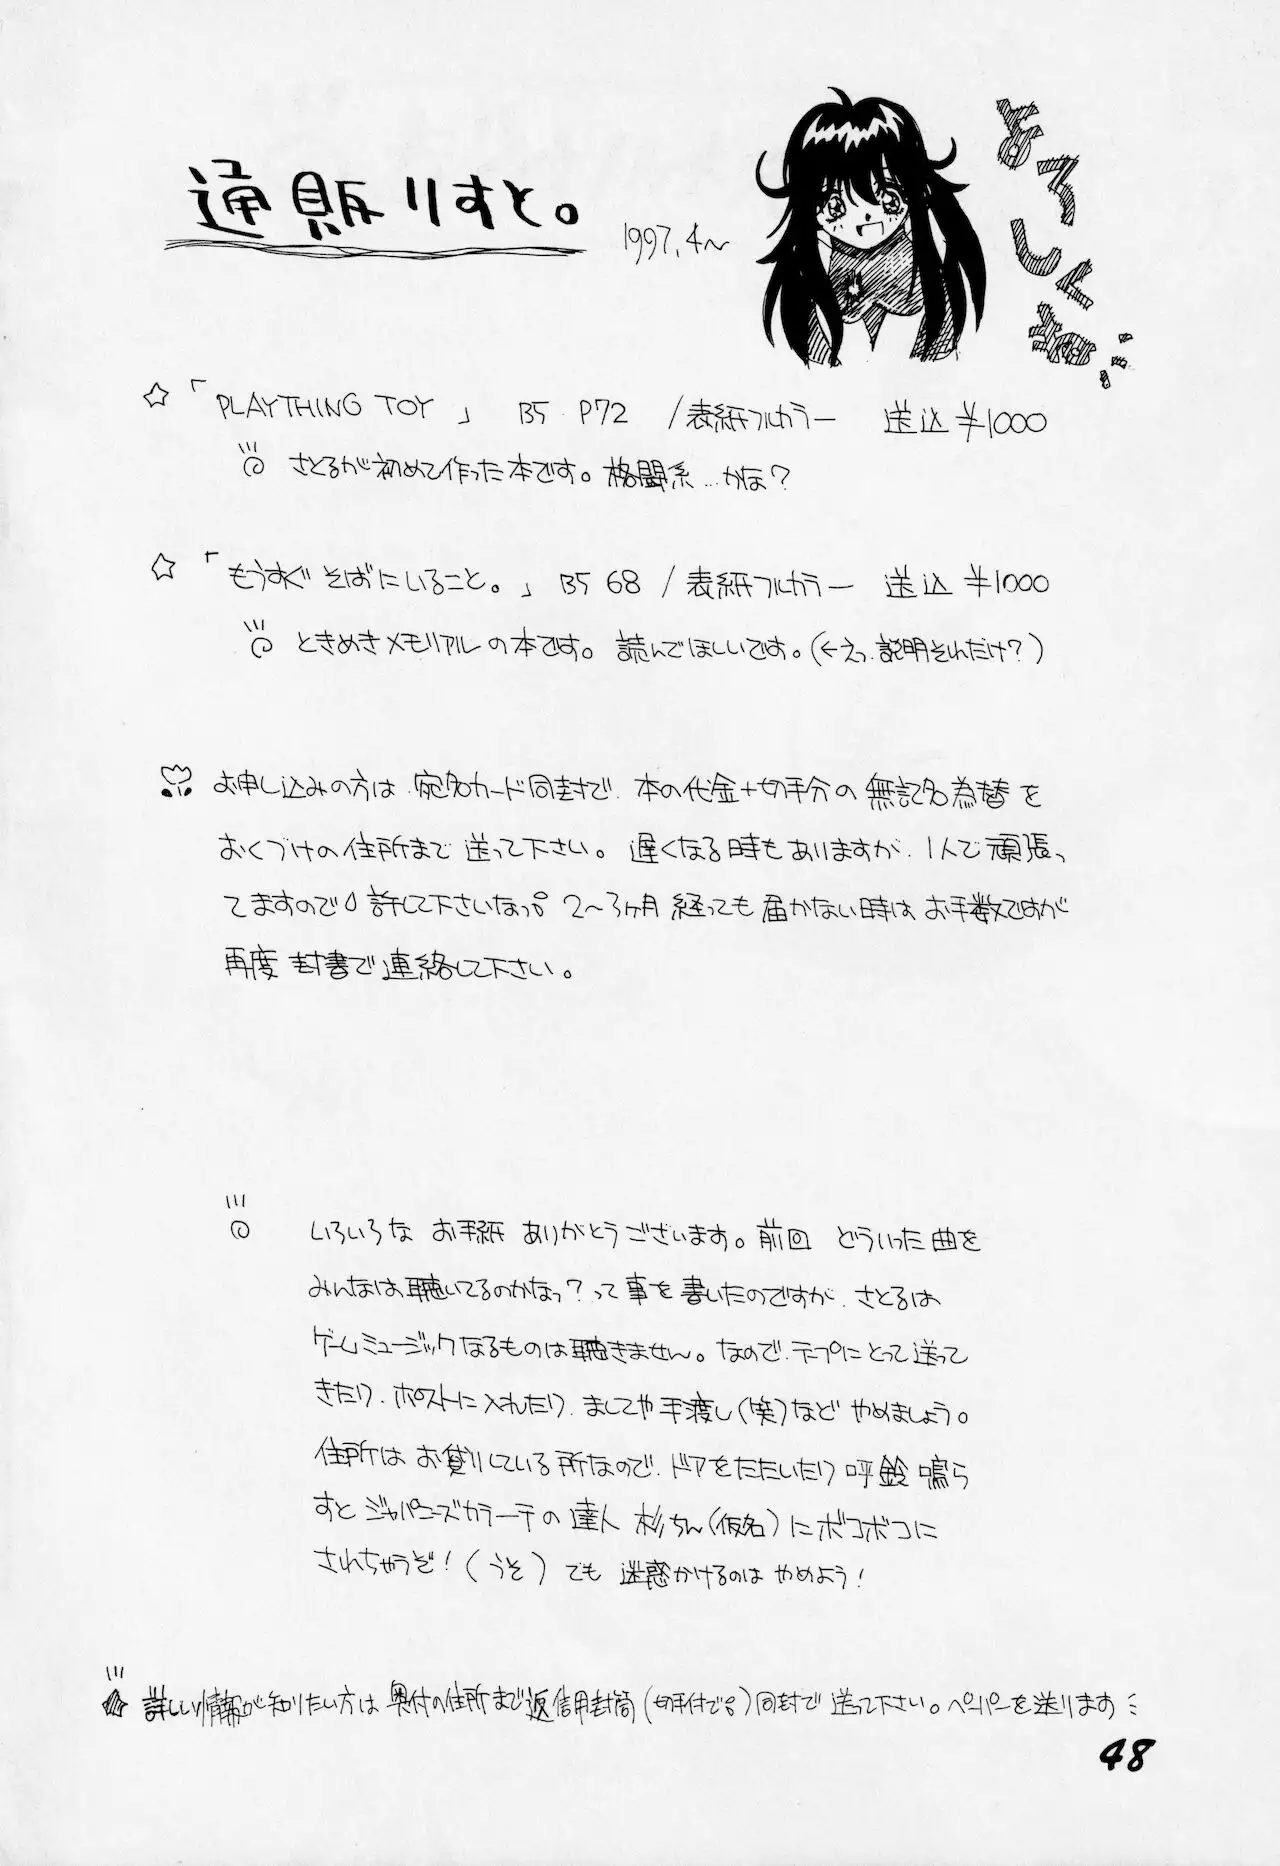 通販りすと。
1997,4〜
よろしくね!!
☆「PLAYTHING TOY」 B5 P72 /表紙フルカラー 送込¥1000
さとるが初めて作った本です。格闘系…かな?
☆「もうすぐそばにいること。」B5 68 /表紙フルカラー 送込¥1000
ときめきメモリアルの本です。読んでほしいです。(←えっ、説明それだけ?)
お申し込みの方は、宛名カード同封で、本の代金+切手分の無記名為替を
おくづけの住所まで送って下さい。遅くなる時もありますが、1人で頑張っ
てますので許して下さいなっ。2〜3ヶ月経っても届かない時はお手数ですが
再度封書で連絡して下さい。
いろいろなお手紙ありがとうございます。前回どういった曲を
みんなは聴いてるのかなっ?って事を書いたのですが、さとるは
ゲームミュージックなるものは聴きません。なので、テープにとって送って
きたり、ポストに入れたり、ましてや手渡し(笑)などやめましょう。
住所はお貸りしている所なので、ドアをたたいたり呼鈴鳴ら
すとジャパニーズカラーテの達人杉ちん(仮名)にボコボコに
されちゃうぞ!(うそ)でも迷惑かけるのはやめよう!
詳しい情報が知りたい方は奥付の住所まで返信用封筒(切手付で。)同封で送って下さい。ペーパーを送ります
48